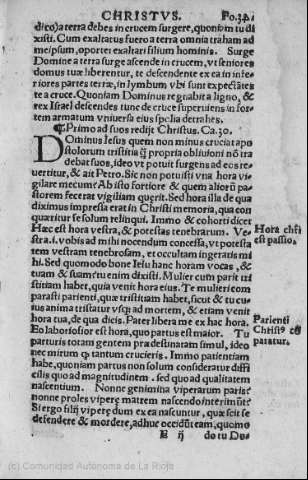 CHRISTVS. Fo. 34.
dico) a terra debes in crucem surgere, quoniam tu di
xisti. Cum exaltatus fuero a terra omnia traham ad
meipsum, oportet exaltari filium hominis. Surge
Domine a terra surge ascende in crucem, vt seniores
domus tuæ liberentur, te descendente ex ea in infe
riores partes terræ, in lymbum vbi sunt expectãtes
te a cruce. Quoniam Dominus regnabit a ligno, &
rex Israel descendes tunc de cruce superuiens in for
tem armatum vniuersa eius spolia detrahes.
¶ Primo ad suos redijt Christus. Ca. 30.
Dominus Iesus quem non minus cruciat apo
stolorum tristitia ꝙ propria obliuioni nõ tra
debat suos, ideo vt potuit surgens ad eos re
uertitur, & ait Petro. Sic non potuisti vna hora vi
gilare mecum? Abisto fortiore & quem aliorũ pa
storem feceras vigiliam quęrit. Sed hora illa de qua
diximus impressa erat in Christi memoria, qua con
quæritur se solum relinqui. Immo & cohorti dicet
Hæc est hora vestra, & potestas tenebrarum. Ve-
stra .i. vobis ad mihi nocendum concessa, vt potesta
tem vestram tenebrosam, et occultam ingeratis mi
hi. Sed quomodo bone Iesu hanc horam vocas, &
tuam & suam? tu enim dixisti. Mulier cum parit tri
stitiam habet, quia venit hora eius. Te mulieri com
parasti parienti, quæ tristitiam habet, sicut & tu cu-
ius anima tristatur vsq; ad mortem, & etiam venit
hora tua, de qua dicis. Pater libera me ex hac hora.
Eo laboriosior est hora, quo partus est maior. Tu
parturis totam gentem prædestinatam simul, ideo
nec mirum ꝙ tantum crucieris. Immo patientiam
habe, quoniam partus non solum consideratur diffi
cilis quo ad magnitudinem. sed quo ad qualitatem
nascentium. Nonne genimina viperarum paris?
nonne proles viperę matrem nascendo interimũt?
Si ergo filij viperę dum ex ea nascuntur, quæ scit se
defendere & mordere, adhuc occidũt eam, quomo
E ij do tu De-
Hora chri
est passio.
Parienti
Christꝰ cõ
paratur.
(c) Comunidad Autonoma de La Rioja